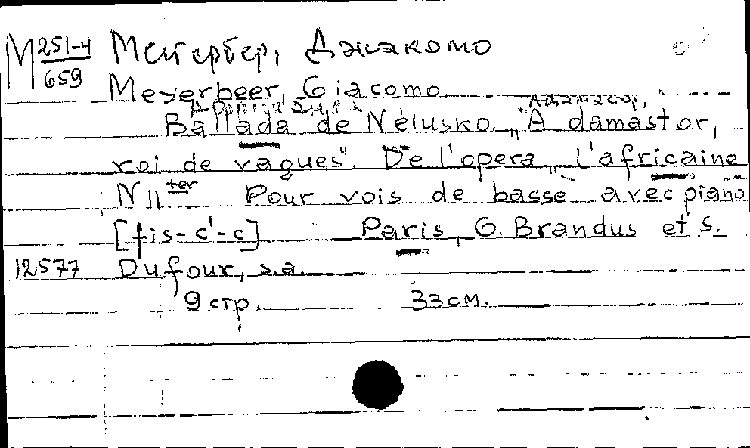 М 251-4 Мейербер, Джакомо
659
Meyerbeer, Giacomo
Ballada de Nélusko „Adamastor,
roi de vagues". De l'opera „L'africaine
N 11 ter Pour vois de basse avec piano
[fis-c'-c] Paris, G. Brandus et S.
12577 Dufour, s.a.
9 стр. 33 см.